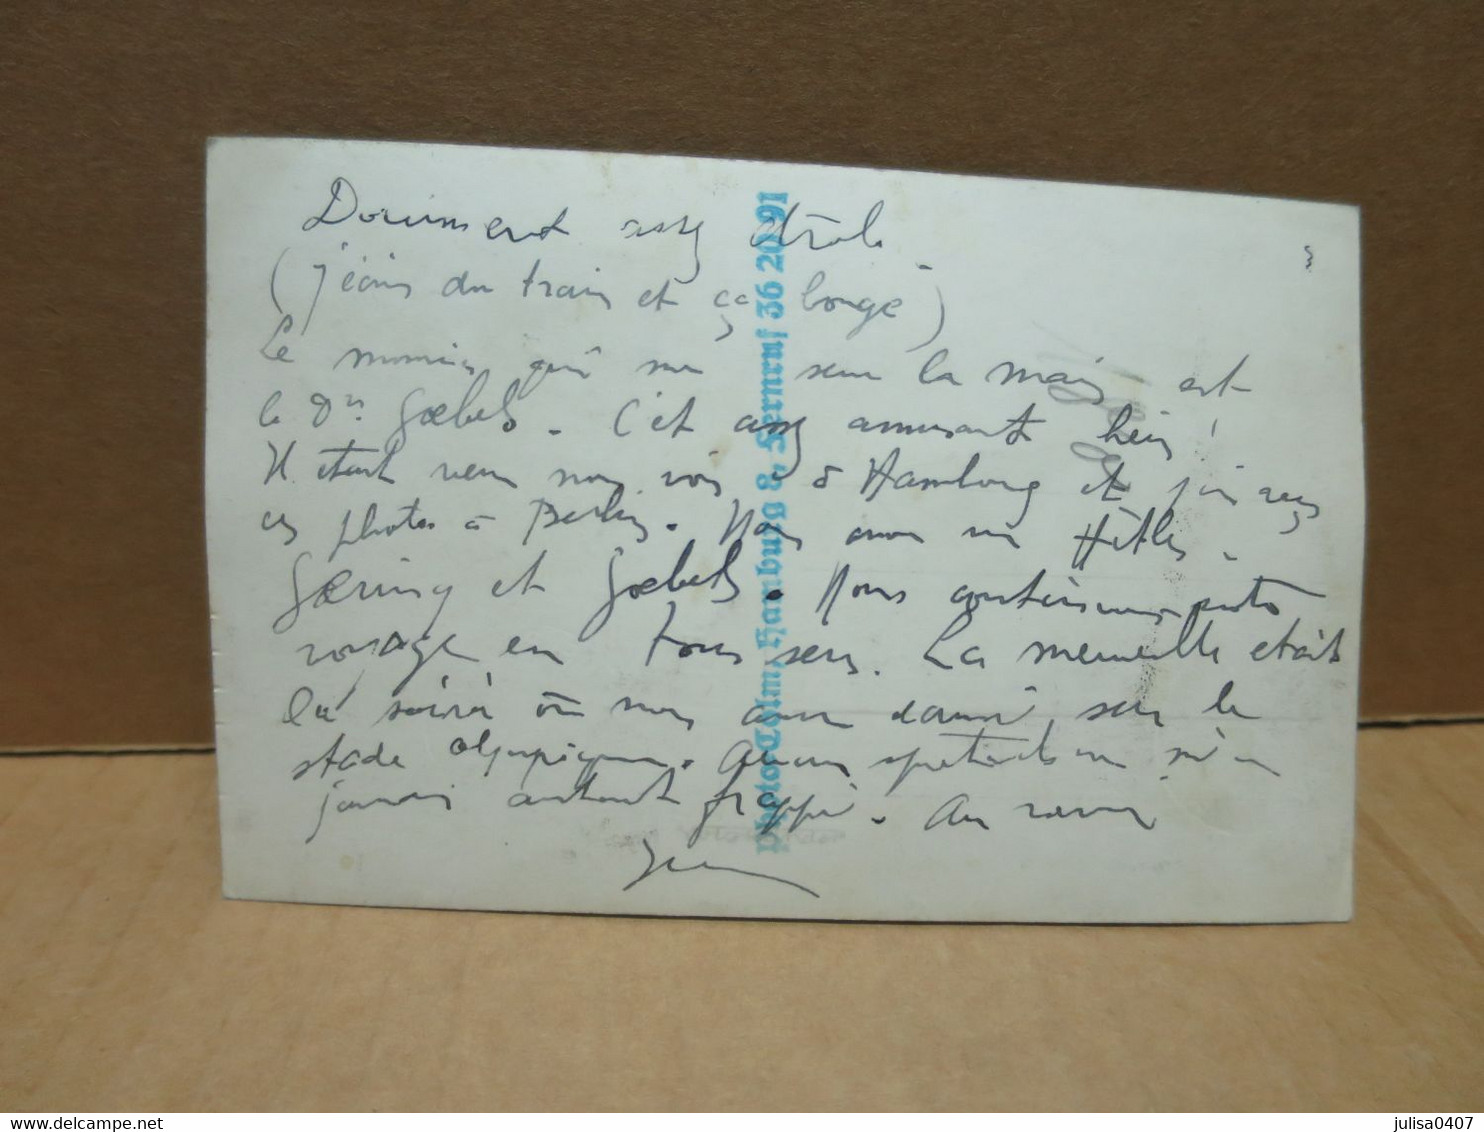 Document assez drôle.
(j'écris du train et ça bouge)
Le monsieur qui me serre la main est
le Dr. Gœbels. C'est assez amusant hein!
Il était venu nous voir à Hambourg et j'ai reçu
ces photos à Berlin. Nous avons vu Hitler.
Gœring et Gœbels. Nous continuons notre
voyage en tous sens. La merveille était
la soirée où nous avons dansé sur le
stade olympique. Aucun spectacle ne m'a
jamais autant frappé. Au revoir
Photo-Colm, Hamburg 8, Fernruf 36 20 91
julisa0407